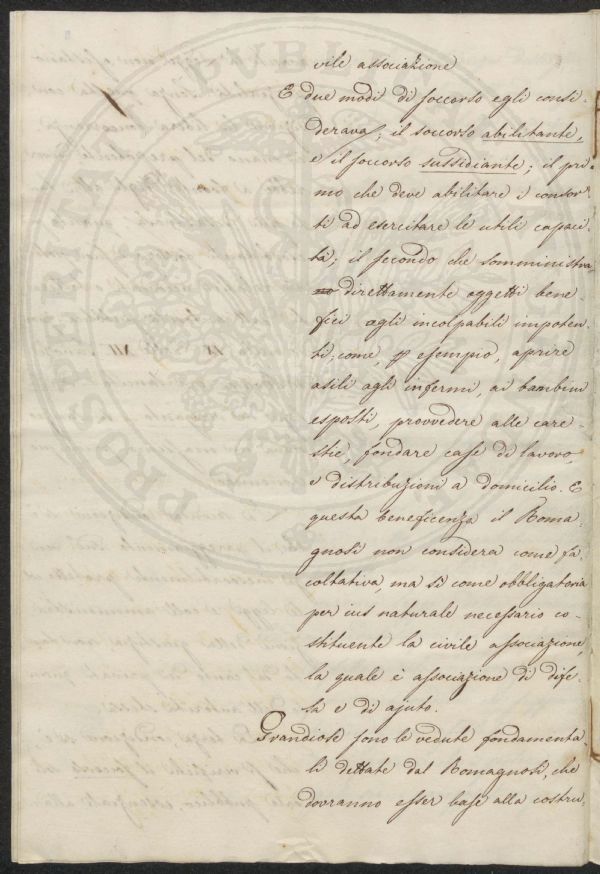 vile associazione
E due modi di soccorso egli consi-
derava; il soccorso abilitante,
e il soccorso sussidiante; il pri-
mo che deve abilitare i consor-
ti ad esercitare le utili capaci-
tà; il secondo che somministra
no direttamente oggetti bene-
fici agli incolpabili impoten-
ti; come, p esempio, aprire
asili agli infermi, ai bambini
esposti, provvedere alle care-
stie, fondare case di lavoro,
e distribuzioni a domicilio. E
questa beneficenza il Roma-
gnosi non considera come fa-
coltativa, ma sì come obbligatoria
per ius naturale necessario co-
stituente la civile associazione,
la quale è associazione di dife-
sa e di ajuto.
Grandiose sono le vedute fondamenta-
li dettate dal Romagnosi, che
dovranno esser base alla costru-